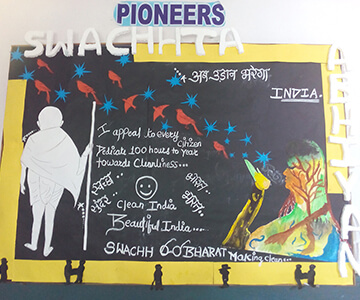 PIONEERS
SWACHHTA
ABHIYAN
अब उड़ान भरेगा
INDIA
I appeal to every citizen
Dedicate 100 hours to year
towards Cleanliness...
Clean India
Beautiful India...
SWACHH BHARAT
Making clean...